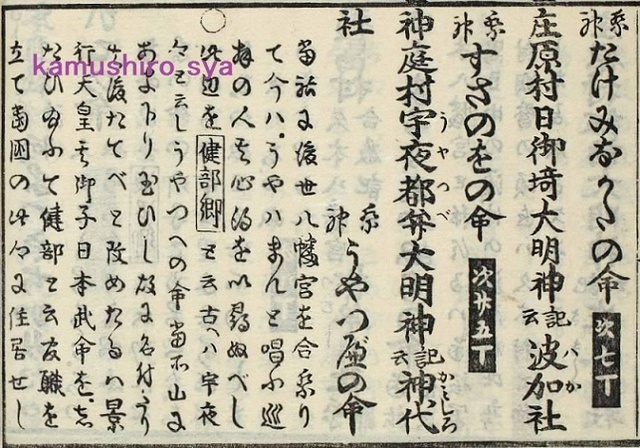 祭神 たけみなかたの命 次七丁
庄原村日御埼大明神 記云 波加社
はか
祭神 すさのをの命 次廿五丁
神庭村宇夜都弁大明神 記云 神代
うやつべ
かみしろ
社 祭神 うやつべの命
當社に後世八幡宮を合祭り
て今ハうやハまんと唱ふ巡
拝の人其心得を以尋ぬべし
此辺を健部郷と云古ハ宇夜
里と云しうやつへの命當所山に
あま下り玉ひし故に名付たり
其後たてべと改めたるハ景
行天皇其御子日本武命を
給ふて健部と云 職を
立て當國の此里に住居せし
kamushiro_sya